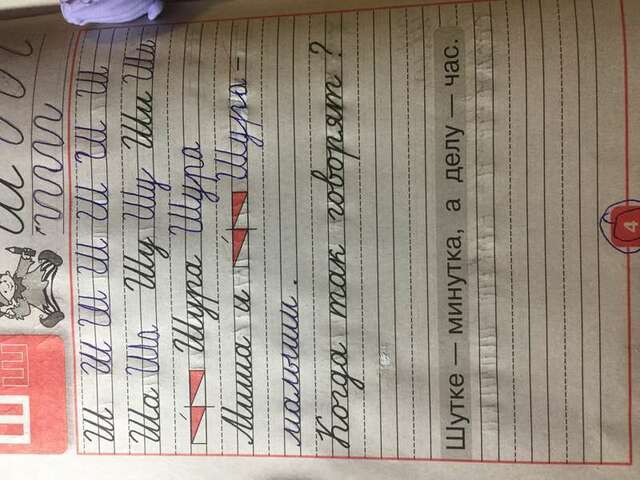 Ш Ш Ш
Ш Ш Ш Ш Ш Ш Ш
Ша Ша Шу Шу Ши Ши
Шура Шура
Миша и Шура –
малыши.
Когда так говорят?
Шутке — минутка, а делу — час.
4